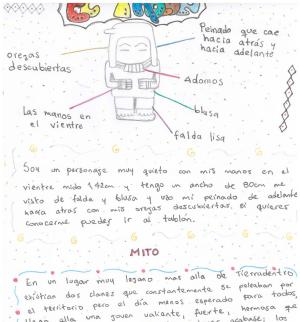 Peinado que cae
hacia atrás y
hacia adelante
orejas
descubiertas
Adornos
Las manos en
el vientre
blusa
falda lisa
Soy un personaje muy quieto con mis manos en el
vientre mido 1,42cm y tengo un ancho de 80cm me
visto de falda y blusa y uso mi peinado de adelante
hacia atras con mis orejas descubiertas. si quieres
conocerme puedes ir al tablón.
MITO
En un lugar muy lejano mas alla de tierradentro
existian dos clanes que constantemente se peleaban por
el territorio pero el día menos esperado para todos,
llego alla una joven valiente, fuerte, hermosa que
los